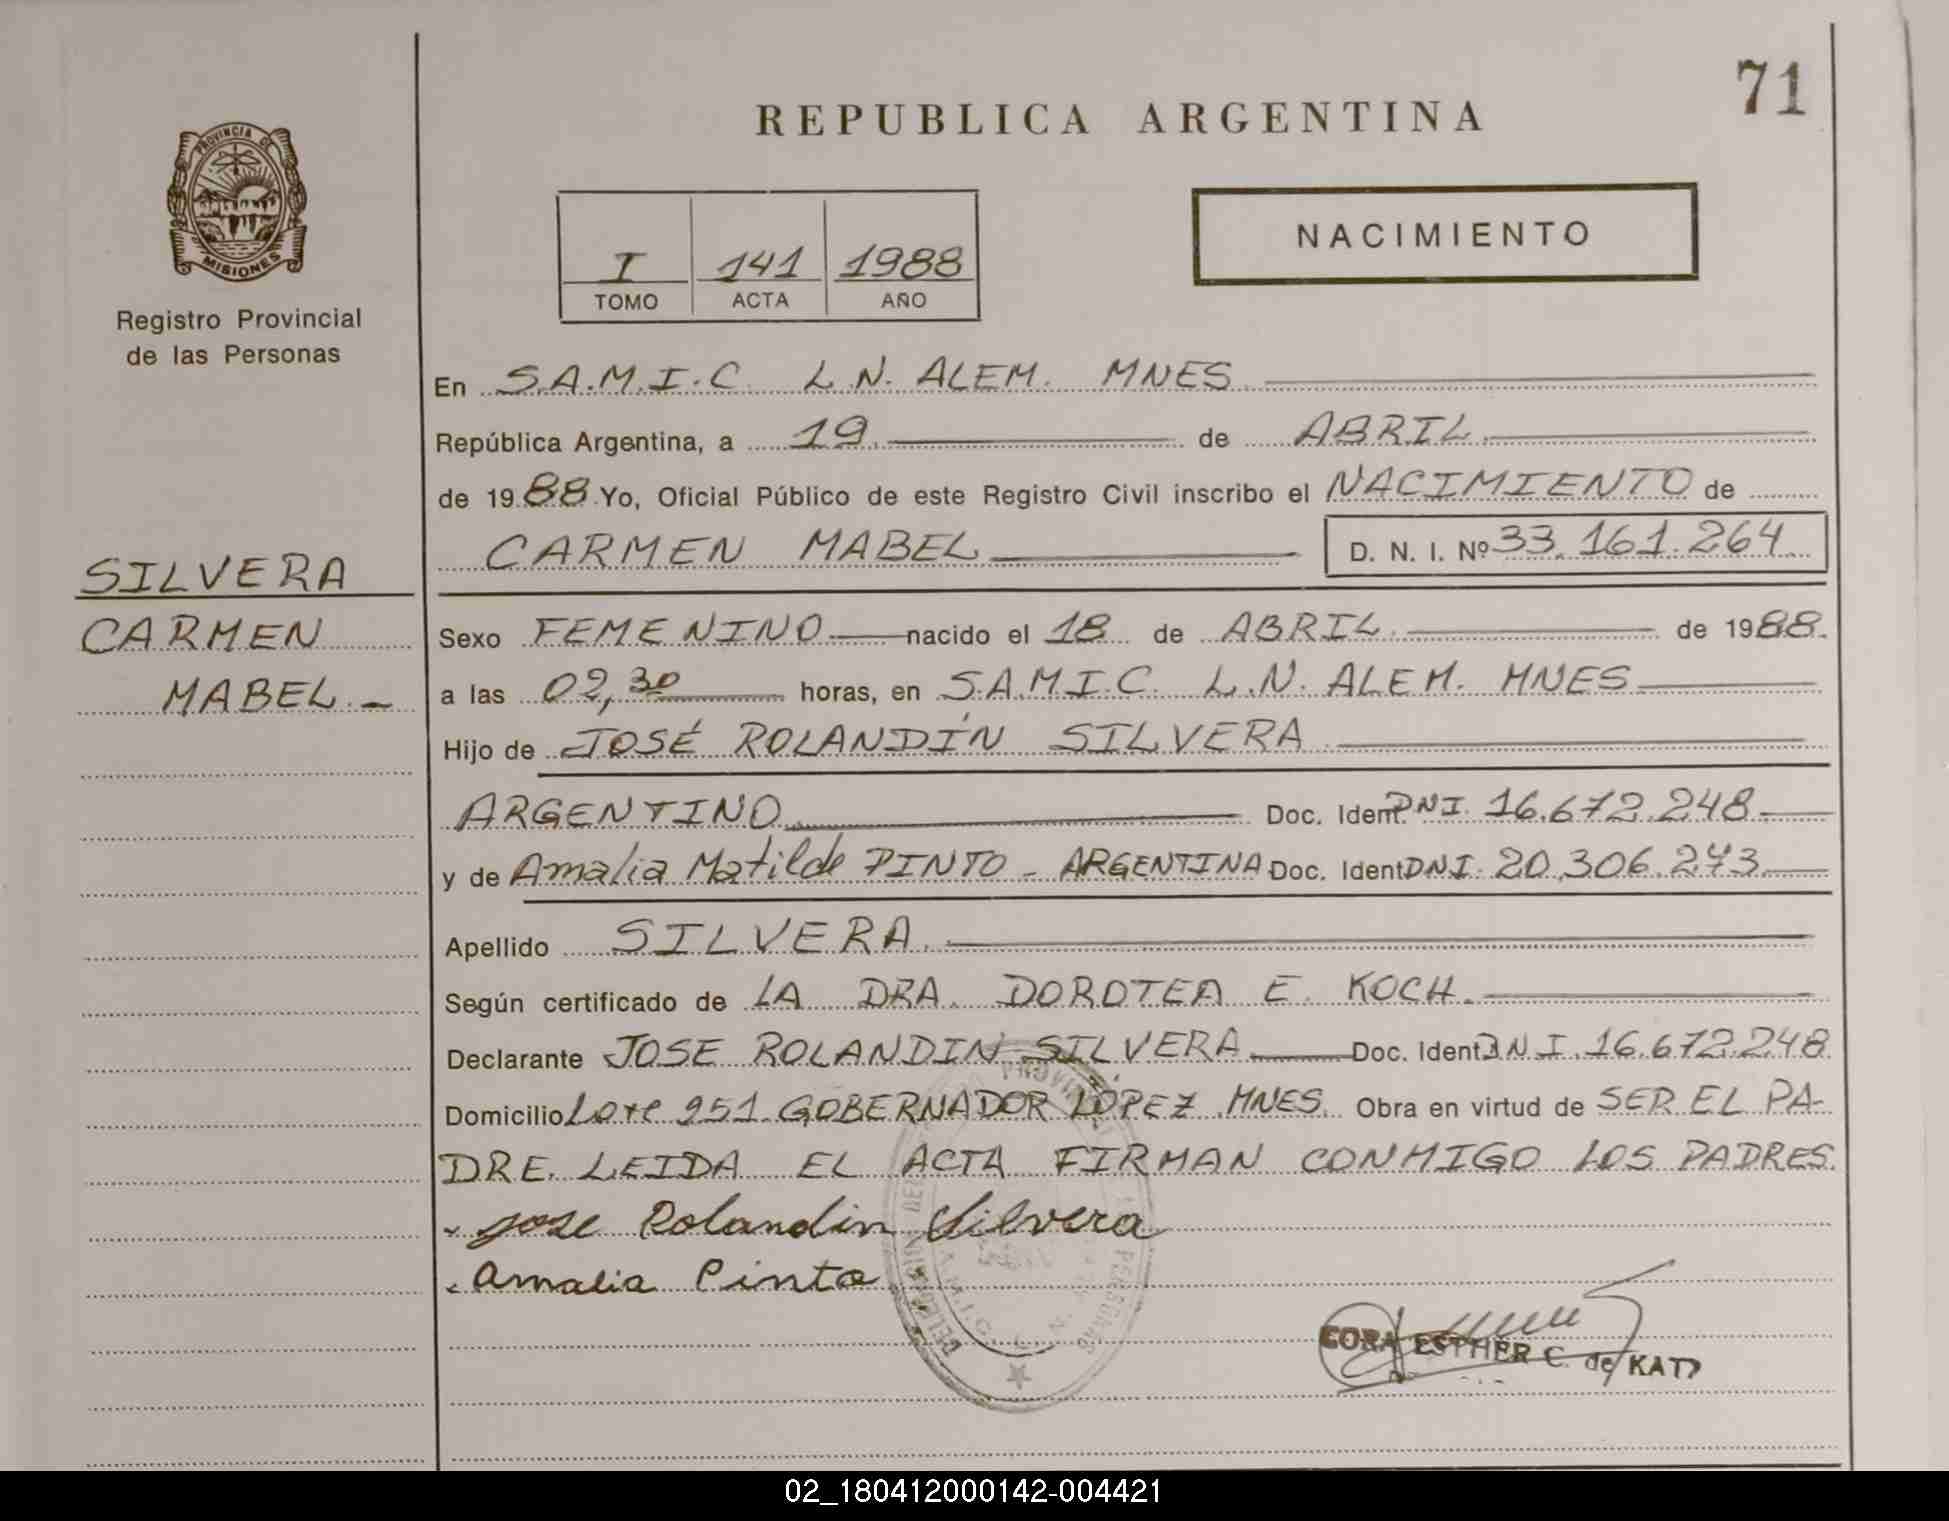 71
REPUBLICA ARGENTINA
PROVINCIA DE
MISIONES
Registro Provincial
de las Personas
I 141 1988
TOMO ACTA AÑO
NACIMIENTO
SILVERA
CARMEN
MABEL.-
En S.A.M.I.C. L.N. ALEM. MNES
República Argentina, a 19 de ABRIL
de 1988 Yo, Oficial Público de este Registro Civil inscribo el NACIMIENTO de
CARMEN MABEL D. N. I. Nº 33.161.264
Sexo FEMENINO nacido el 18 de ABRIL de 1988.
a las 02,30 horas, en S.A.M.I.C. L.N. ALEM. MNES
Hijo de JOSÉ ROLANDÍN SILVERA
ARGENTINO Doc. Ident. DNI. 16.672.248
y de Amalia Matilde PINTO - ARGENTINA Doc. Ident DNI. 20.306.273
Apellido SILVERA.
Según certificado de LA DRA. DOROTEA E. KOCH.
Declarante JOSE ROLANDIN SILVERA Doc. Ident DNI. 16.672.248
Domicilio Lote 251 GOBERNADOR LÓPEZ MNES. Obra en virtud de SER EL PA-
DRE. LEIDA EL ACTA FIRMAN CONMIGO LOS PADRES.
Jose Rolandin Silvera
Amalia Pinto
CORA ESTHER C. de KATZ
02_180412000142-004421